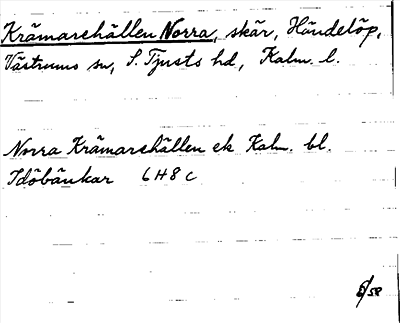 Krämarehällen Norra, skär, Händelöp,
Västrums sn, S. Tjusts hd, Kalm. l.
Norra Krämarehällen ek Kalm. bl.
Idöbänkar 6H8c
6/58